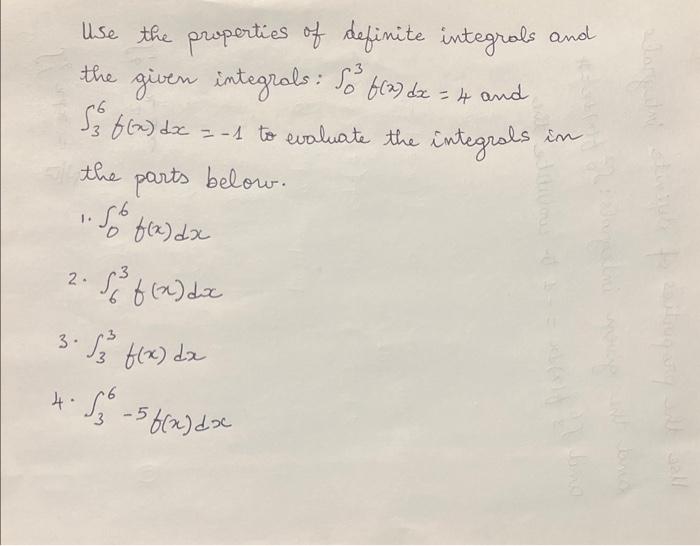 Use the properties of definite integrals and
the given integrals: ∫₀³ f(x) dx = 4 and
∫₃⁶ f(x) dx = -1 to evaluate the integrals in
the parts below.
1. ∫₀⁶ f(x) dx
2. ∫₆³ f(x) dx
3. ∫₃³ f(x) dx
4. ∫₃⁶ -5 f(x) dx